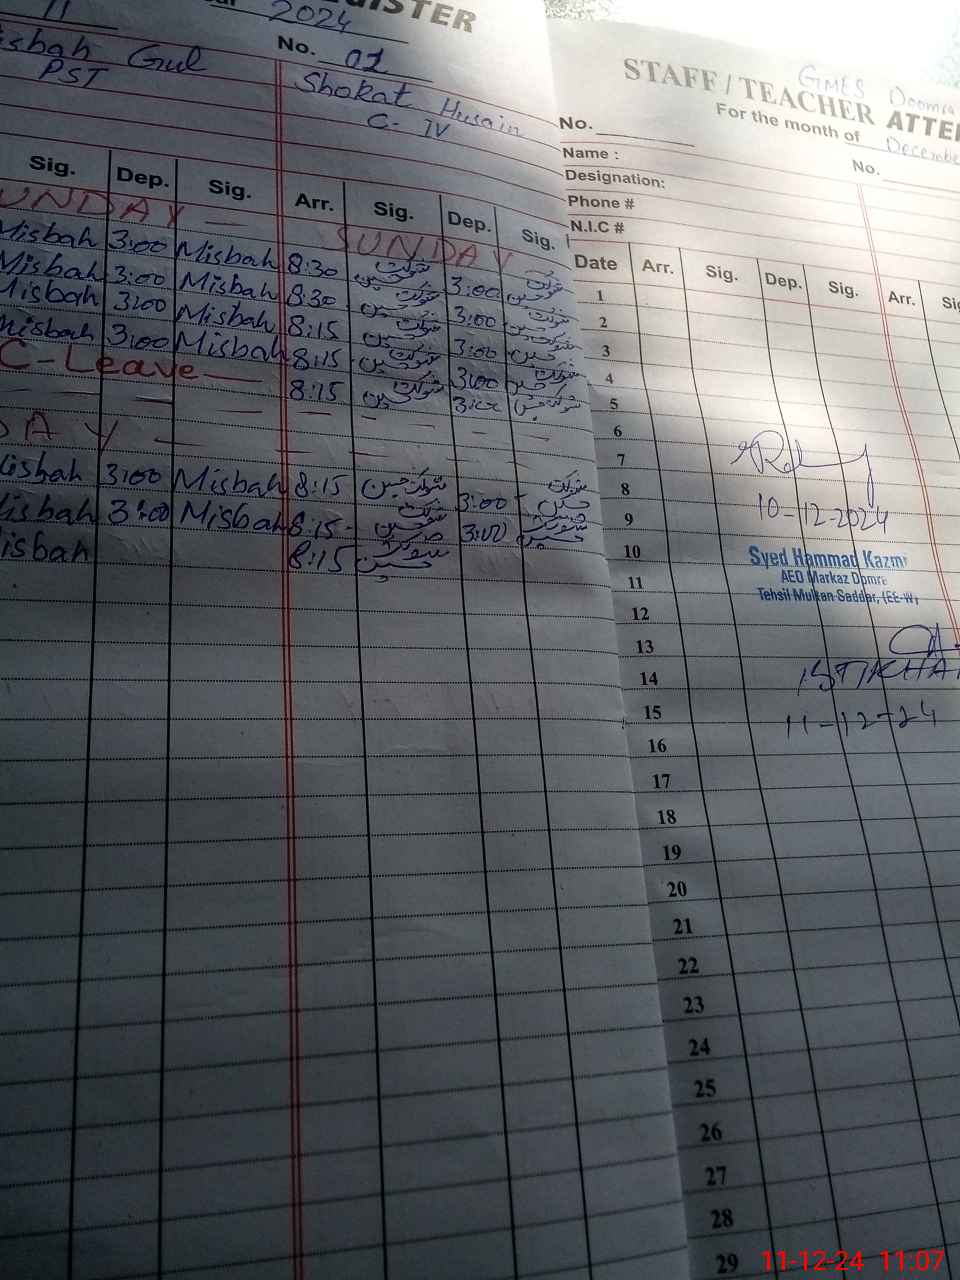 GISTER
2024
11
No. 01
isbah Gul
PST
Shokat Husain
C-IV
Sig. Dep. Sig. Arr. Sig. Dep. Sig.
UNDAY — SUNDAY
Misbah 3:00 Misbah 8:30 شوکت حسین 3:00 شوکت حسین
Misbah 3:00 Misbah 8:30 شوکت حسین 3:00 شوکت حسین
Misbah 3:00 Misbah 8:15 شوکت حسین 3:00 شوکت حسین
Misbah 3:00 Misbah 8:15 شوکت حسین 3:00 شوکت حسین
C-Leave — 8:15 شوکت حسین 3:00 شوکت حسین
DAY —
Misbah 3:00 Misbah 8:15 شوکت حسین 3:00 شوکت حسین
isbah 3:00 Misbah 8:15 شوکت حسین 3:00 شوکت حسین
isbah 8:15 شوکت حسین
GMES Doomra
STAFF / TEACHER ATTE
For the month of December
No.
No.
Name :
Designation:
Phone #
N.I.C #
Date Arr. Sig. Dep. Sig. Arr. Sig
1
2
3
4
5
6
7
8
9
10-12-2024
10
Syed Hammad Kazm
AEO Markaz Domra
11
Tehsil Multan Saddar, (EE-W)
12
13
14
ISTIKHA
15
11-12-24
16
17
18
19
20
21
22
23
24
25
26
27
28
29
11-12-24 11:07